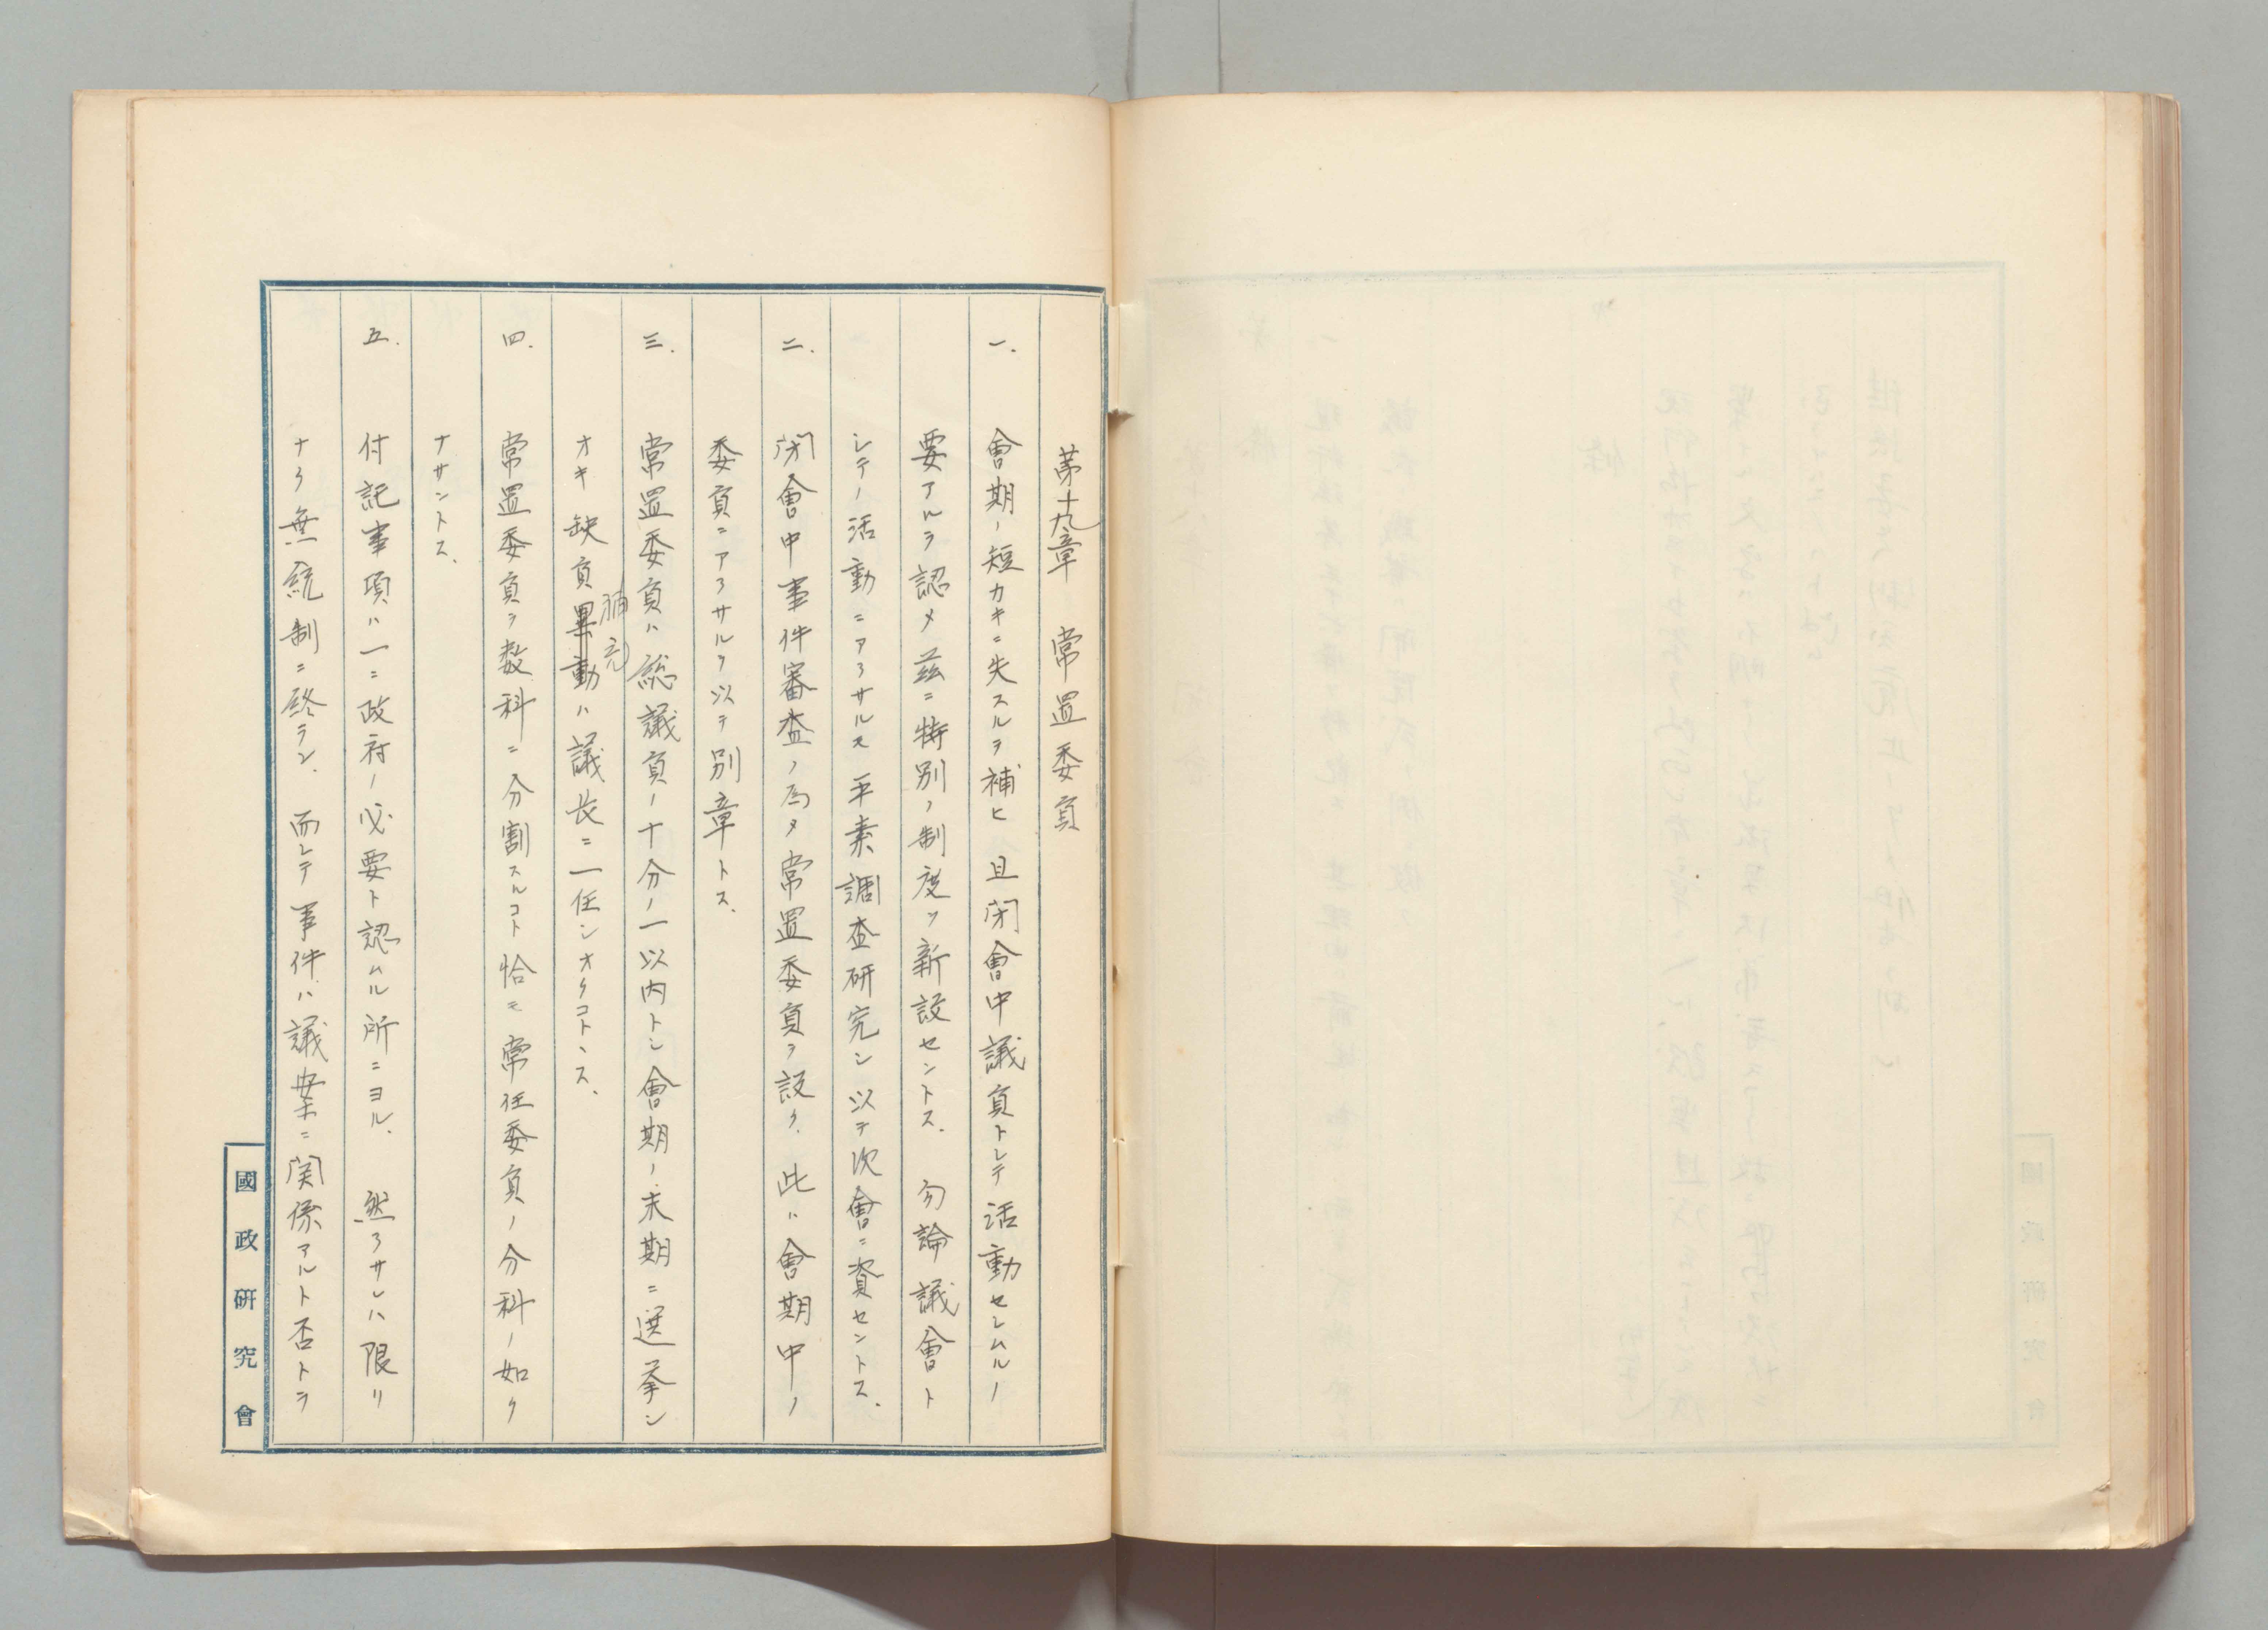 第十九章　常置委員
一.　會期ノ短カキニ失スルヲ補ヒ　且閉會中議員トシテ活動セシムルノ
要アルヲ認メ茲ニ特別ノ制度ヲ新設セントス.　勿論議會ト
シテノ活動ニアラサルモ平素調査研究シ以テ次會ニ資セントス.
二.　閉會中事件審査ノ為メ常置委員ヲ設ク.　此ハ會期中ノ
委員ニアラサルヲ以テ別章トス.
三.　常置委員ハ総議員ノ十分ノ一以内トシ會期ノ末期ニ選挙シ
オキ缺員異動ハ議長ニ一任シオクコトヽス.
補充
四.　常置委員ヲ数科ニ分割スルコト恰モ常任委員ノ分科ノ如ク
ナサントス.
五.　付記事項ハ一ニ政府ノ必要ト認ムル所ニヨル.　然ラサレハ限リ
ナク無統制ニ終ラン.　而シテ事件ハ議案ニ関係アルト否トヲ
國政研究會